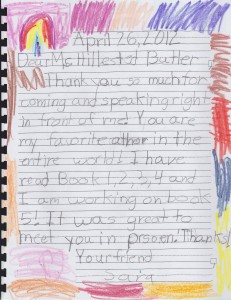 April 26, 2012
Dear Ms. Hillestad Butler
Thank you so much for
coming and speaking right
in front of me! You are
my favorite athor in the
entire world! I have
read Book 1, 2, 3, 4 and
I am working on book
5! It was great to
meet you in prson! Thanks!
Your friend